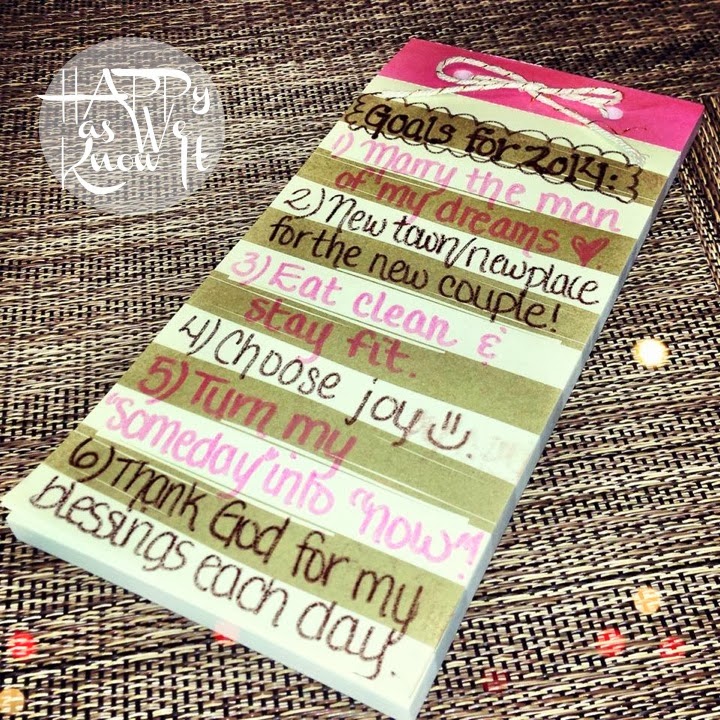 HAPPy
as We
Know It
Goals for 2014:
1) Marry the man
of my dreams ♥.
2) New town/new place
for the new couple!
3) Eat clean &
stay fit.
4) Choose joy ☺.
5) Turn my
"Someday" into "now"!
6) Thank God for my
blessings each day.